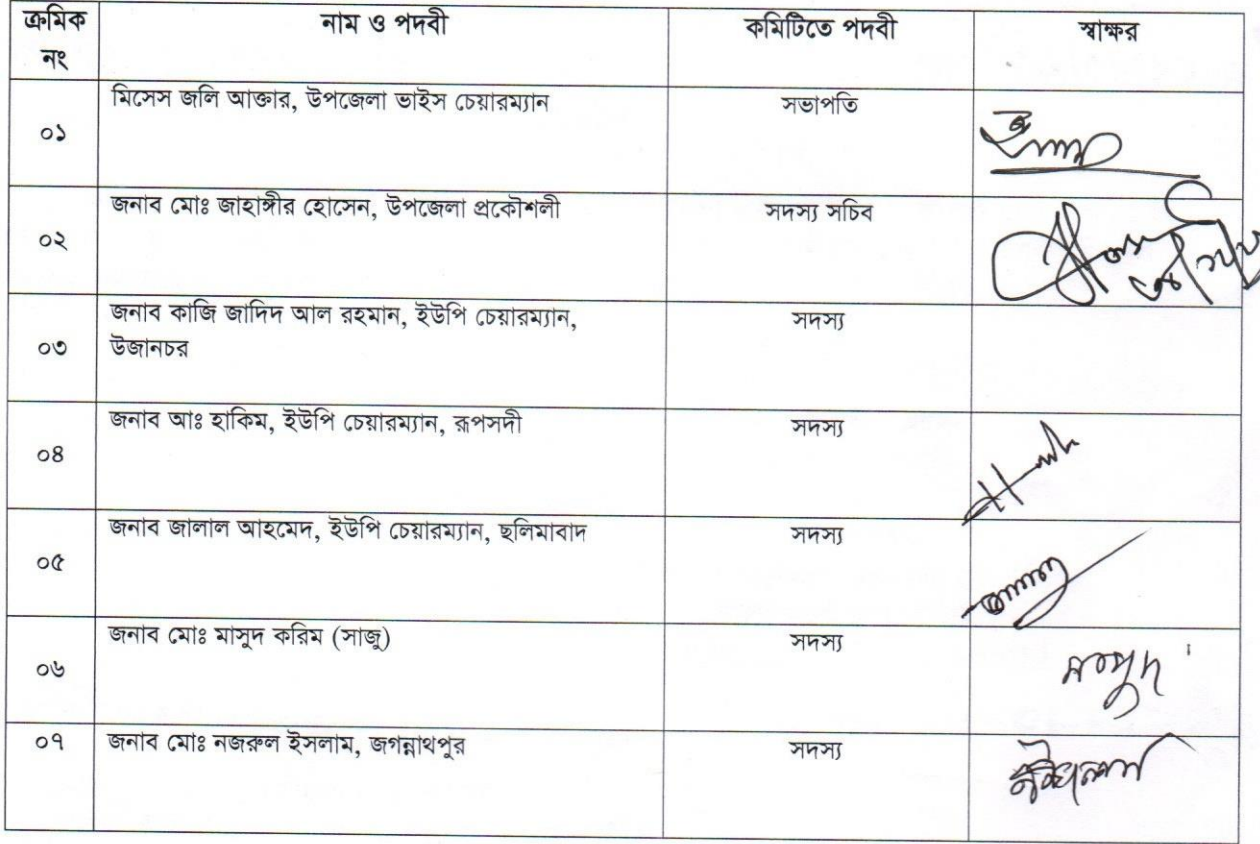 ক্রমিক নং নাম ও পদবী কমিটিতে পদবী স্বাক্ষর
০১ মিসেস জলি আক্তার, উপজেলা ভাইস চেয়ারম্যান সভাপতি
০২ জনাব মোঃ জাহাঙ্গীর হোসেন, উপজেলা প্রকৌশলী সদস্য সচিব
০৩ জনাব কাজি জাদিদ আল রহমান, ইউপি চেয়ারম্যান, সদস্য
উজানচর
০৪ জনাব আঃ হাকিম, ইউপি চেয়ারম্যান, রূপসদী সদস্য
০৫ জনাব জালাল আহমেদ, ইউপি চেয়ারম্যান, ছলিমাবাদ সদস্য
০৬ জনাব মোঃ মাসুদ করিম (সাজু) সদস্য মাসুদ
০৭ জনাব মোঃ নজরুল ইসলাম, জগন্নাথপুর সদস্য